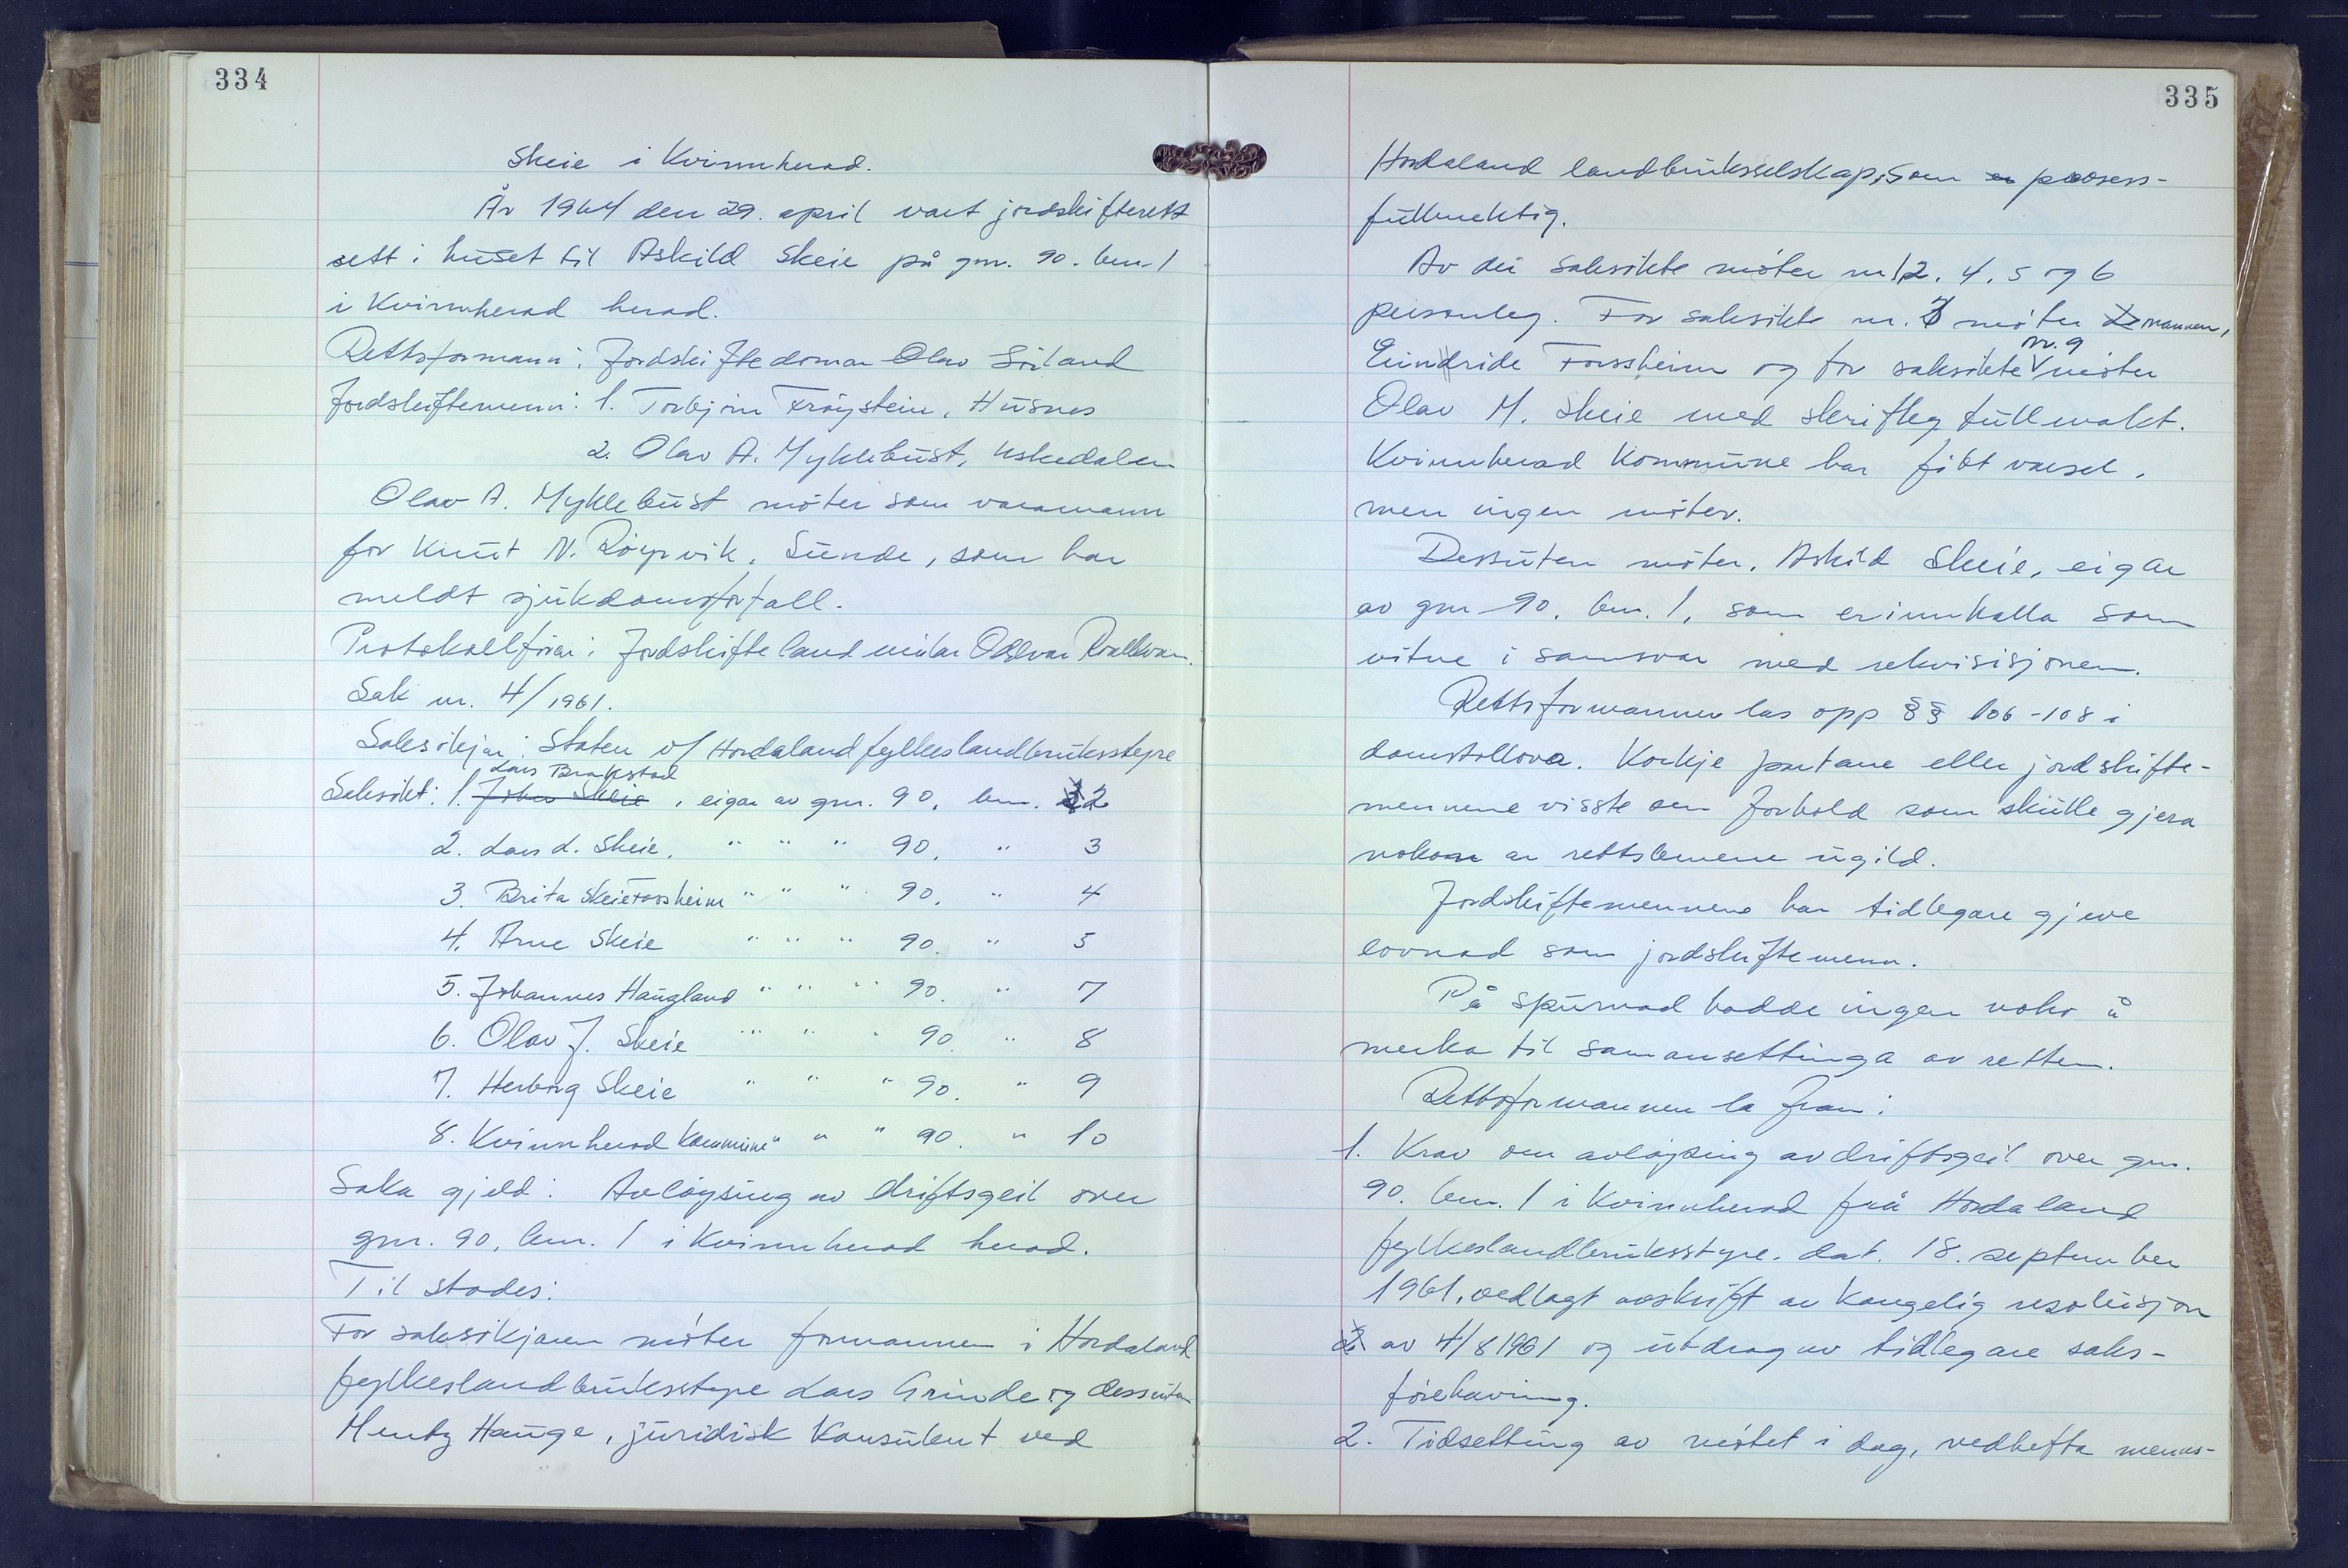 334
Skeie i Kvinnherad.
År 1964 den 29. april vart jordskifterett
sett i huset til Askild Skeie på gnr. 90. bnr. 1
i Kvinnherad herad.
Rettsformann: Jordskiftedomar Olav Söiland
Jordskiftemenn: 1. Torbjörn Fröystein, Husnes
2. Olav A. Myklebust, Uskedalen
Olav A. Myklebust möter som varamann
for Knut N. Röyrvik, Sunde, som har
meldt sjukdomsforfall.
Protokollförar: Jordskiftelandmålar Oddvar
Sak nr. 4/1961.
Saksökjar: Staten v/ Hordaland fylkeslandbruksstyre
Lars Brakstad
Saksökt: 1. John Skeie, eigar av gnr. 90, bnr. 2
2. Lars L. Skeie, " " " 90, " 3
3. Brita Skeie Forssheim " " " 90, " 4
4. Arne Skeie " " " 90. " 5
5. Johannes Haugland " " " 90. " 7
6. Olav J. Skeie " " " 90. " 8
7. Herborg Skeie " " " 90. " 9
8. Kvinnherad kommune " " " 90. " 10
Saka gjeld: Avlöysing av driftsgeil over
gnr. 90, bnr. 1 i Kvinnherad herad.
Til stades:
For saksökjaren möter formannen i Hordaland
fylkeslandbruksstyre Lars Grinde og dessutan
Mentz Hauge, juridisk konsulent ved
335
Hordaland landbruksselskap, som prosess-
fullmektig.
Av dei saksökte möter nr 1, 2, 4, 5 og 6
personleg. For saksökte nr. 3 möter mannen,
Eindride Forssheim og for saksökte
nr. 9
möter
Olav M. Skeie med skriftleg fullmakt.
Kvinnherad kommune har fått varsel,
men ingen möter.
Dessuten möter, Askild Skeie, eigar
av gnr 90, bnr. 1, som er innkalla som
vitne i samsvar med rekvisisjonen.
Rettsformannen las opp §§ 106-108 i
domstollova. Korkje partane eller jordskifte-
mennene visste om forhold som skulle gjera
nokon av rettslemene ugild.
Jordskiftemennene har tidlegare gjeve
lovnad som jordskiftemenn.
På spurnad hadde ingen noko å
merka til samansettinga av retten.
Rettsformannen la fram:
1. Krav om avlöysing av driftsgeil over gnr.
90. bnr. 1 i Kvinnherad frå Hordaland
fylkeslandbruksstyre, dat. 18. september
1961, vedlagt avskrift av kongelig resolusjon
2. av 4/8 1961 og utdrag av tidlegare saks-
förehaving.
2. Tidsetting av mötet i dag, vedhefta menns-